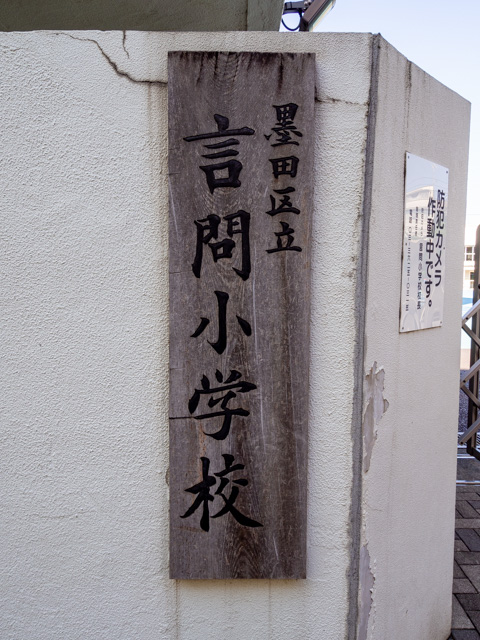 墨田区立
言問小学校
防犯カメラ
作動中です。